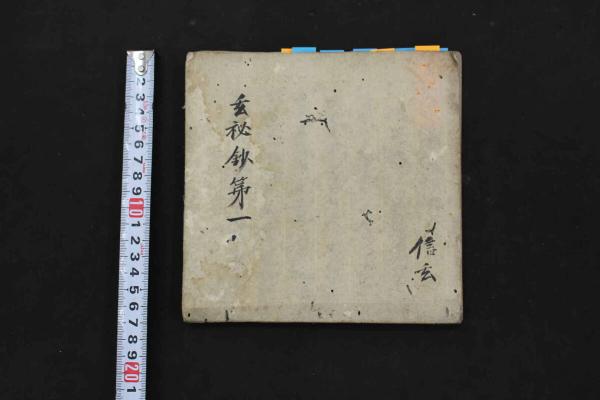 玄秘鈔第一
信玄
2
3
4
5
6
7
8
9
10
1
2
3
4
5
6
7
8
9
20
1